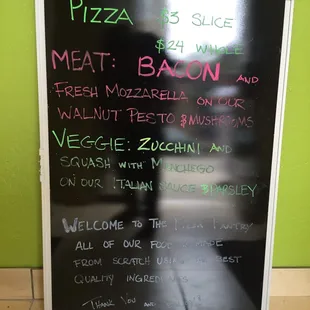 PIZZA $3 SLICE
$24 WHOLE
MEAT: BACON AND
FRESH MOZZARELLA ON OUR
WALNUT PESTO & MUSHROOMS
VEGGIE: ZUCCHINI AND
SQUASH WITH MANCHEGO
ON OUR ITALIAN SAUCE & PARSLEY
WELCOME TO THE PIZZA PANTRY
ALL OF OUR FOOD IS MADE
FROM SCRATCH USING FINEST
QUALITY INGREDIENTS
THANK YOU AND